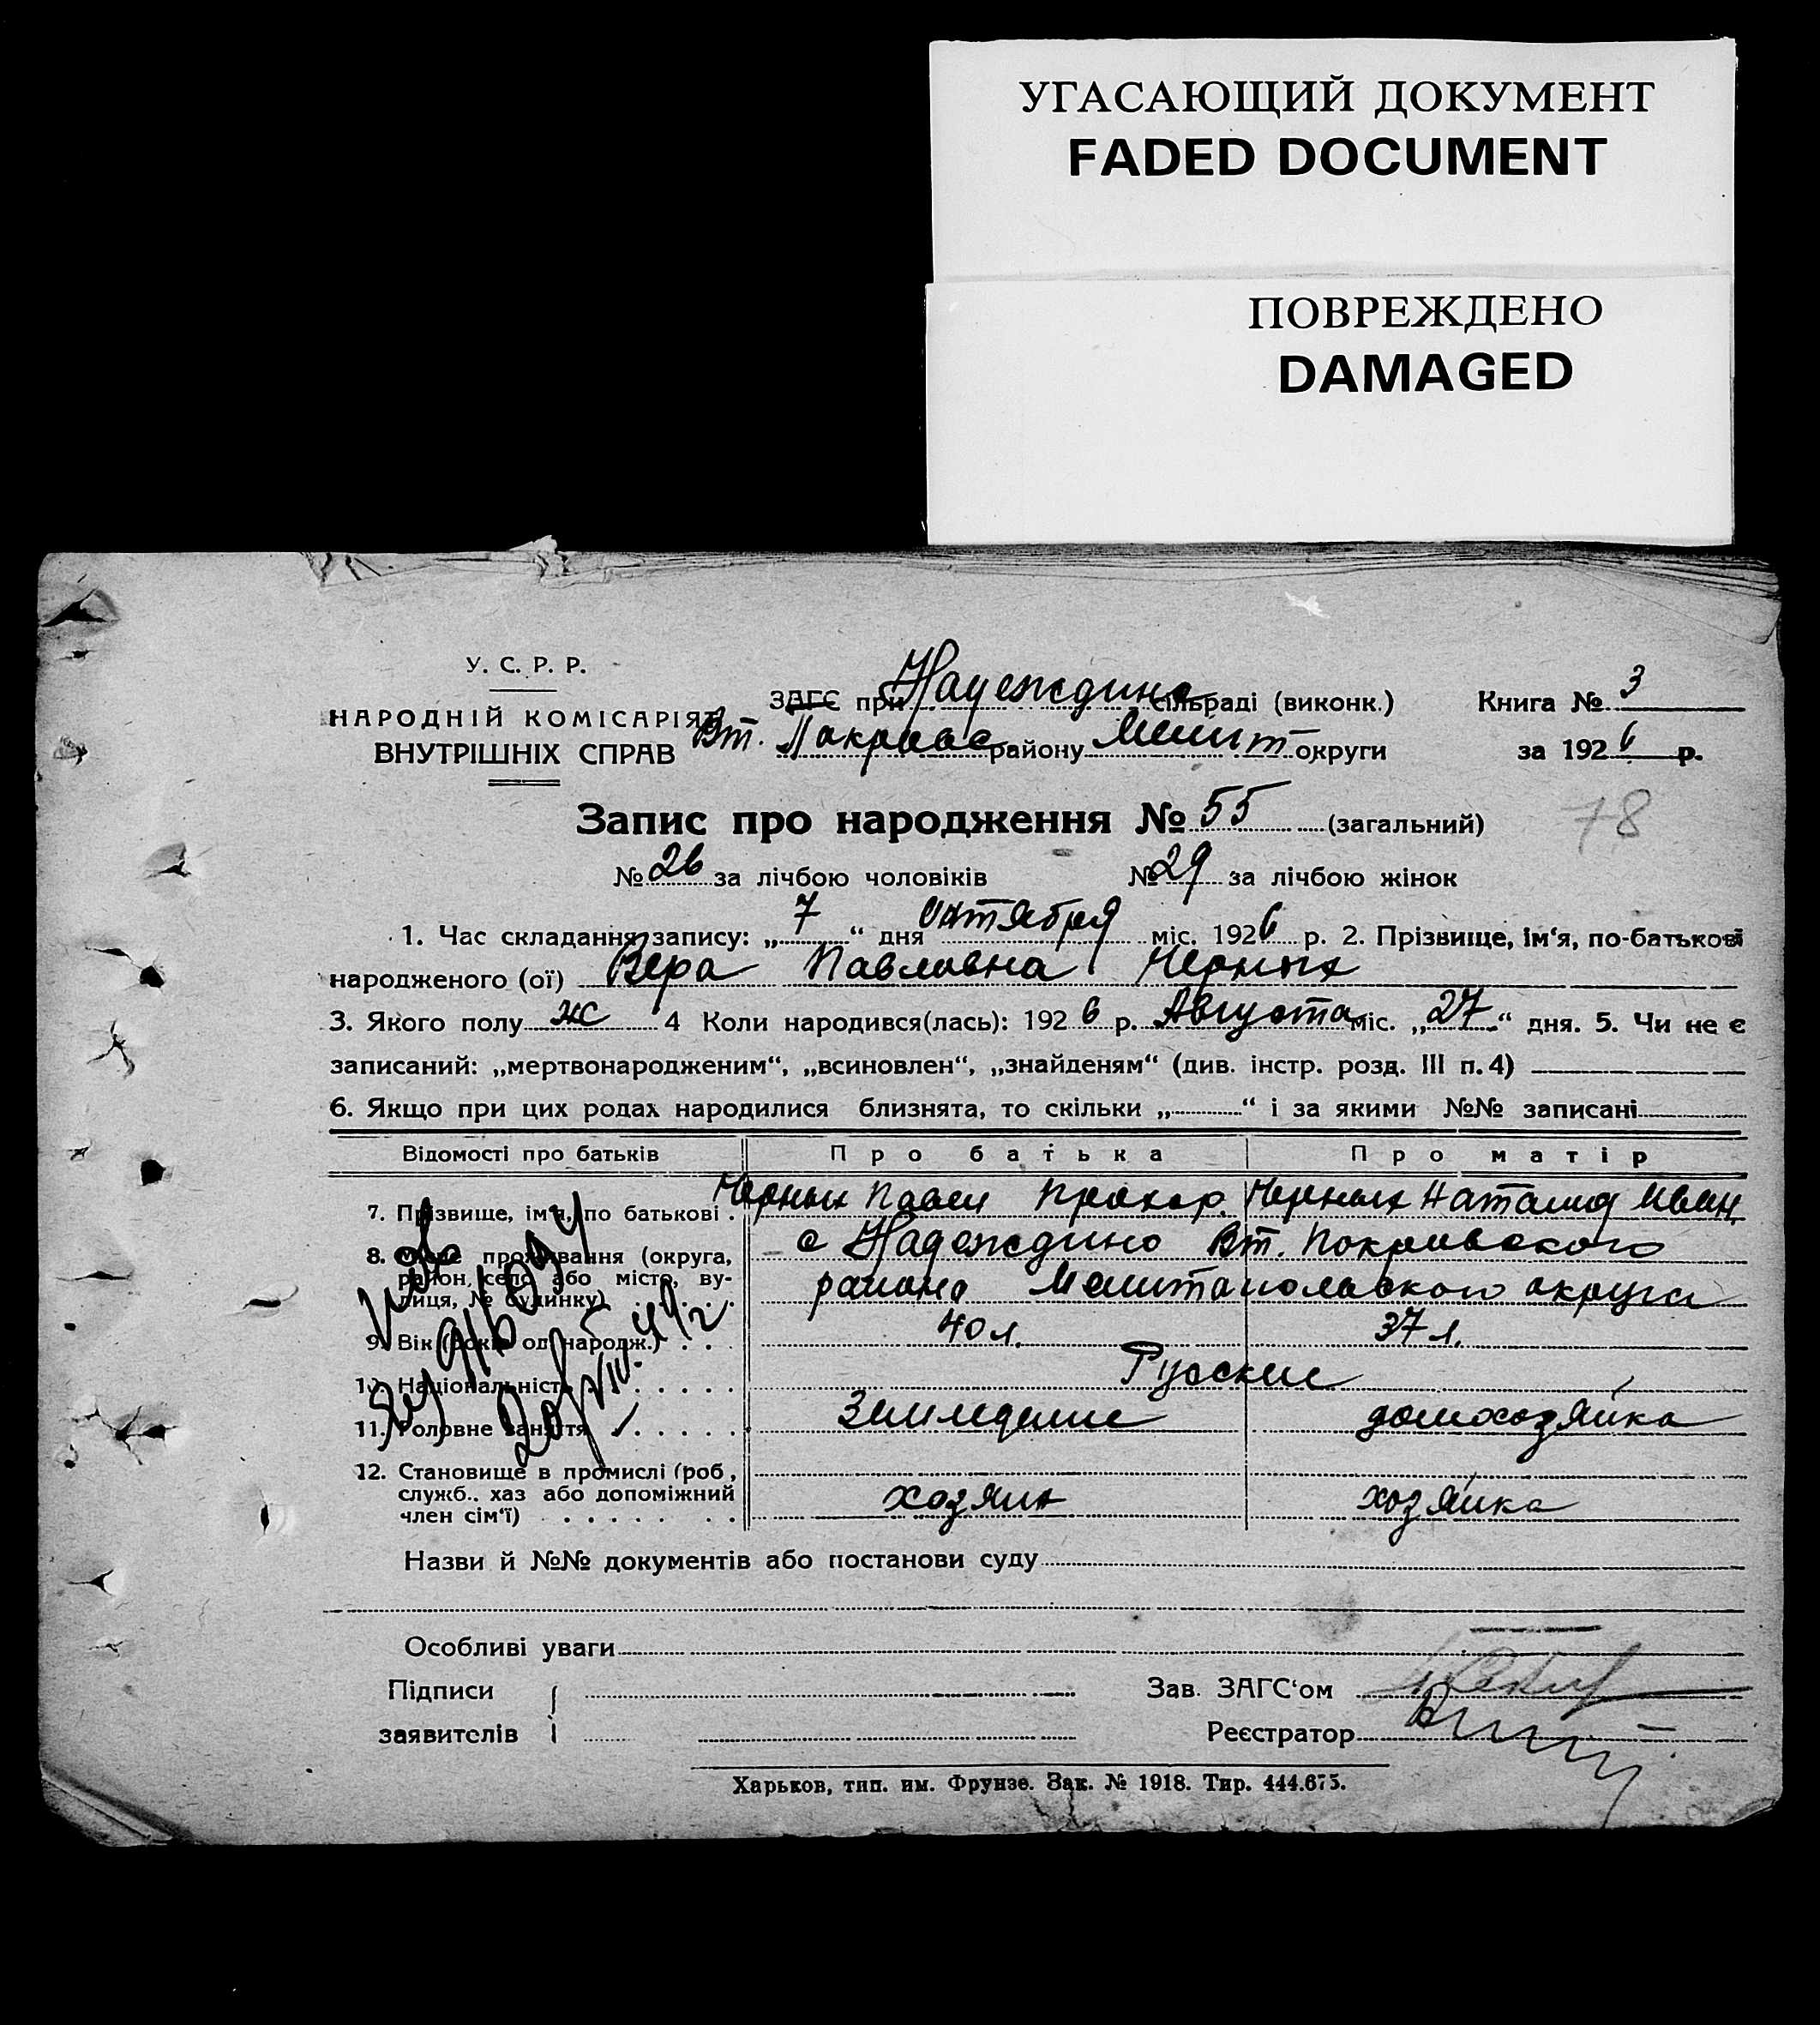 УГАСАЮЩИЙ ДОКУМЕНТ
FADED DOCUMENT
ПОВРЕЖДЕНО
DAMAGED
У. С. Р. Р.
НАРОДНІЙ КОМІСАРІЯТ
ВНУТРІШНІХ СПРАВ
ЗАГС при Надеждино сільраді (виконк.) Книга № 3
Вт. Покровс району Мелит округи за 1926 р.
Запис про народження № 55 (загальний)
78
№ 26 за лічбою чоловіків № 29 за лічбою жінок
1. Час складання запису: „7“ дня Октября міс. 1926 р. 2. Прізвище, ім‘я, по-батькові
народженого (ої) Вера Павловна Черных
3. Якого полу ж 4 Коли народився(лась): 1926 р. Августа міс. „27“ дня. 5. Чи не є
записаний: „мертвонародженим“, „всиновлен“, „знайденям“ (див. інстр. розд. III п. 4)
6. Якщо при цих родах народилися близнята, то скільки „ “ і за якими №№ записані
Відомості про батьків Про батька Про матір
7. Прізвище, ім‘я, по батькові Черных Павел Прохор. Черных Наталия Иван.
8. Місце проживання (округа, с Надеждино Вт. Покровского
район, село або місто, ву- района Мелитопольского округа
лиця, № будинку)
9. Вік (років од народж.) 40 л. 37 л.
10. Національність Русские
11. Головне заняття Земледелие домохозяйка
12. Становище в промислі (роб.,
служб., хаз або допоміжний хозяин хозяйка
член сім‘ї)
Назви й №№ документів або постанови суду
Особливі уваги
Підписи Зав. ЗАГС‘ом
заявителів Реєстратор
Харьков, тип. им. Фрунзе. Зак. № 1918. Тир. 444.675.